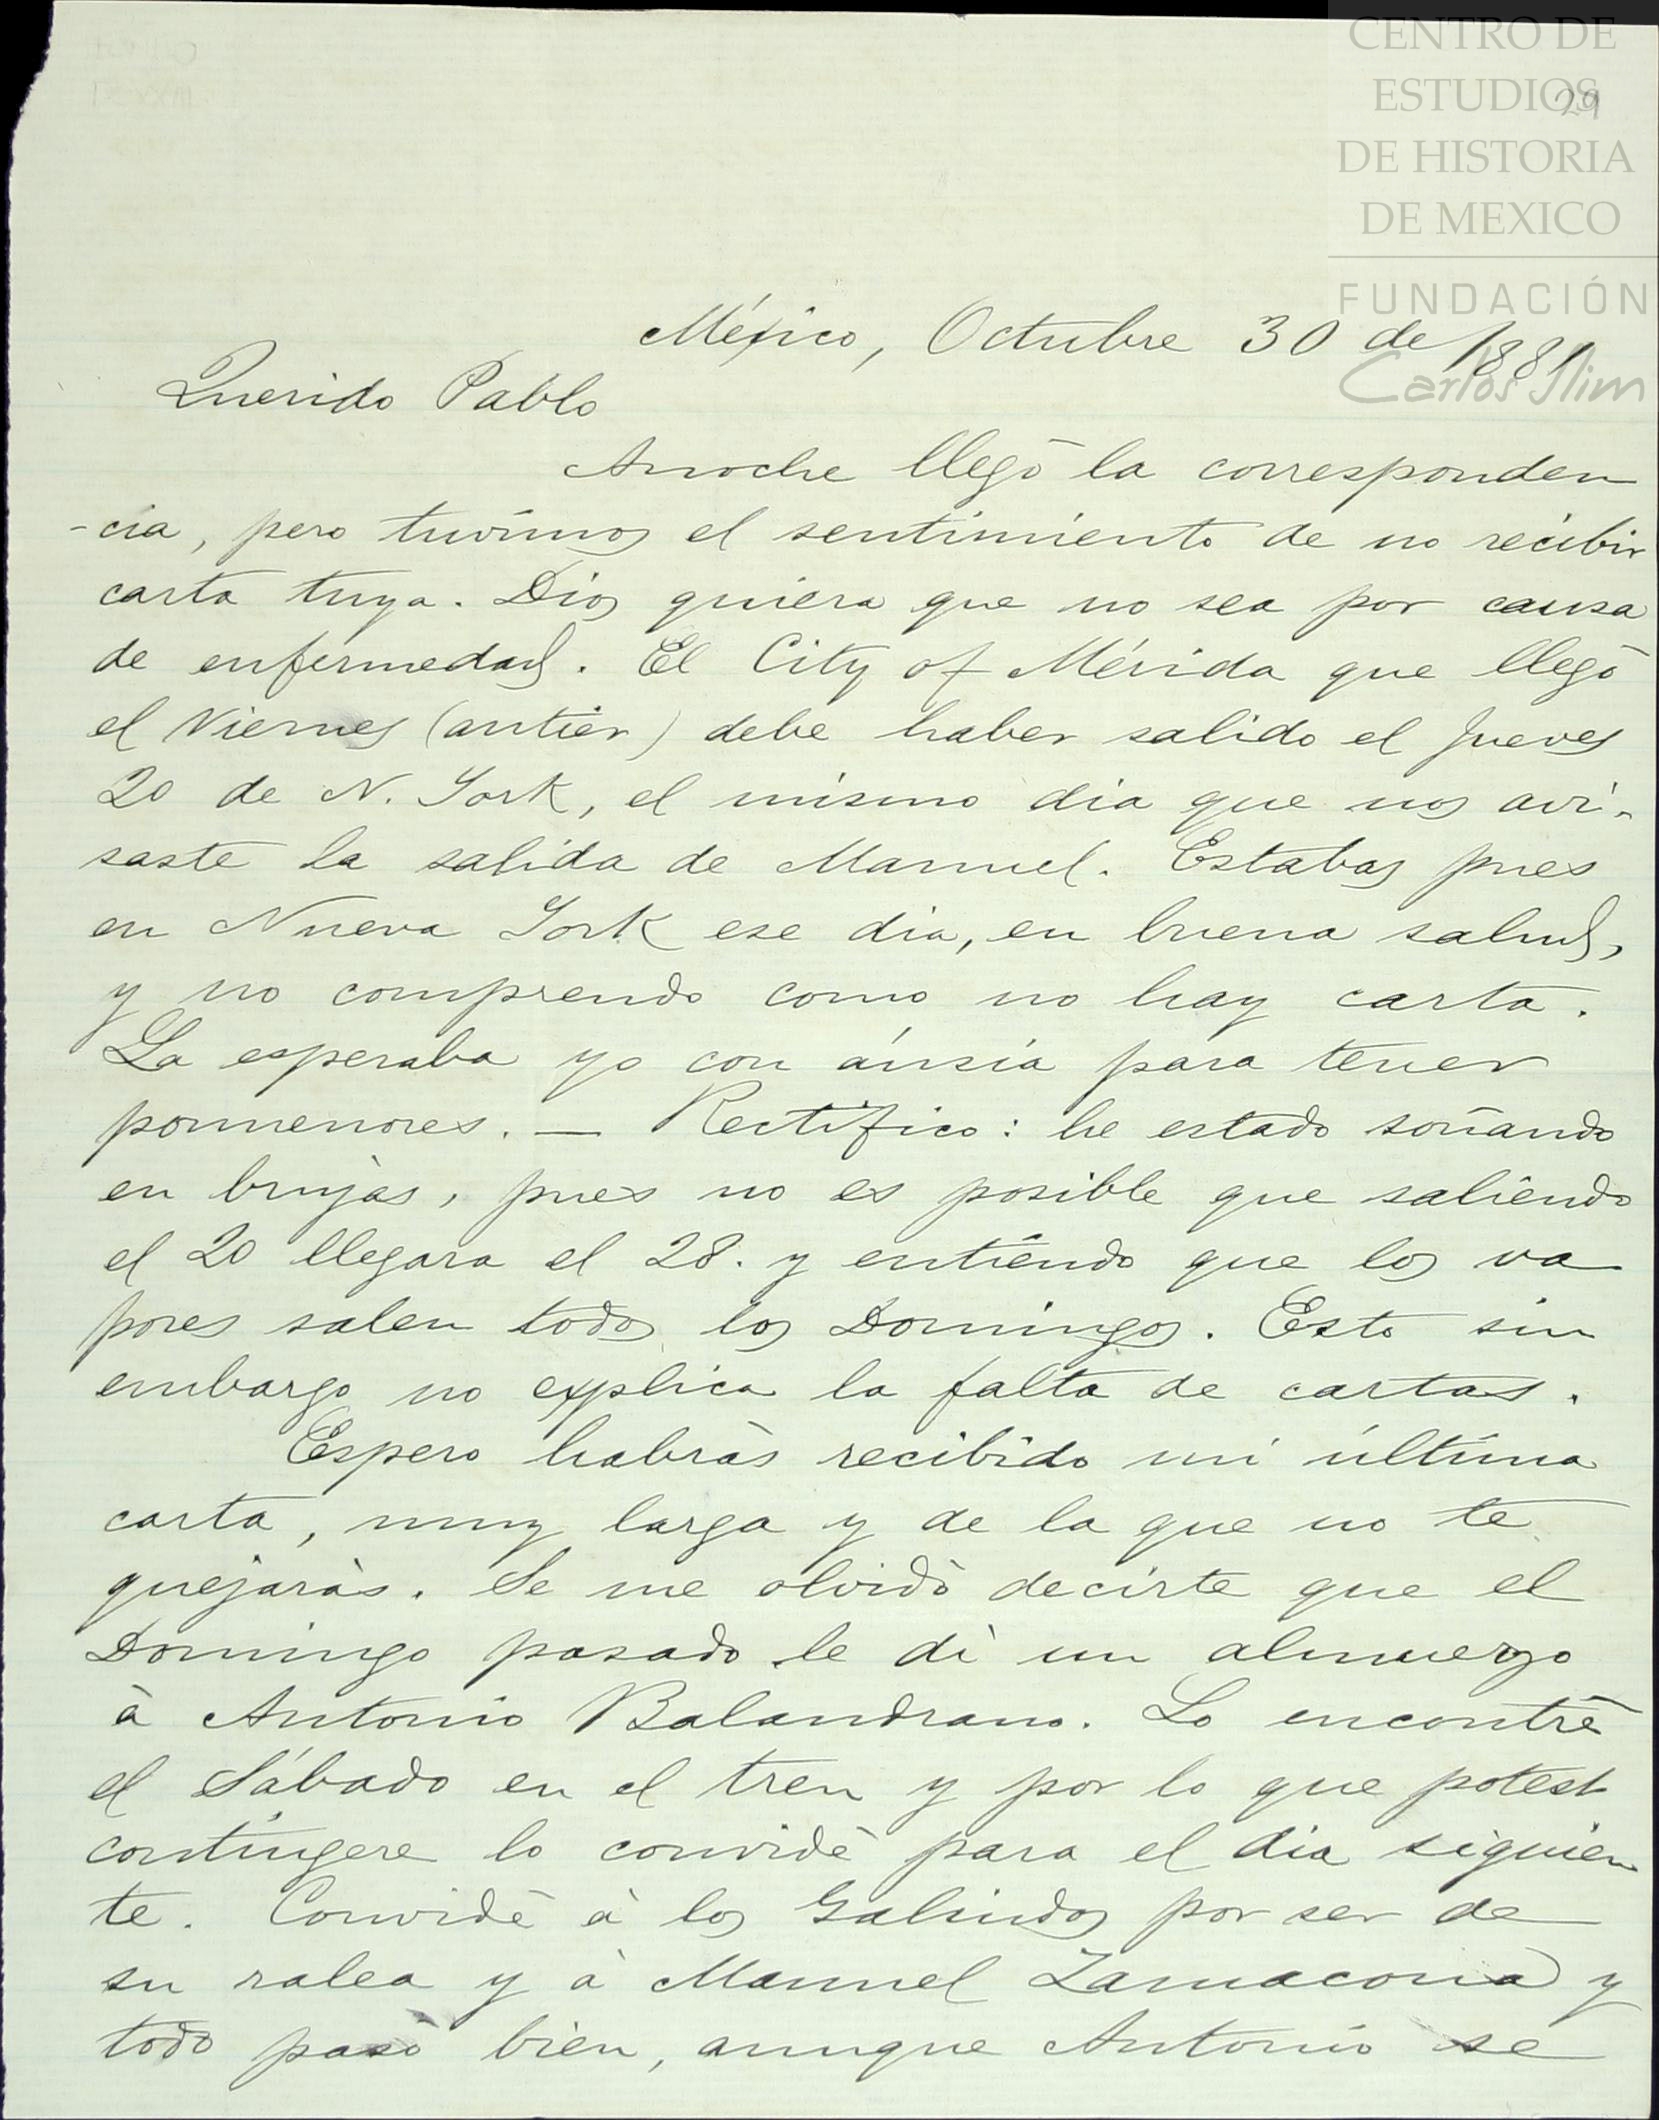 CENTRO DE
ESTUDIOS
29
DE HISTORIA
DE MEXICO
FUNDACIÓN
Carlos Slim
México, Octubre 30 de 1881
Querido Pablo
Anoche llegó la corresponden
-cia, pero tuvimos el sentimiento de no recibir
carta tuya. Dios quiera que no sea por causa
de enfermedad. El City of Mérida que llegó
el Viernes (antier) debe haber salido el Jueves
20 de N. York, el mismo dia que nos avi-
saste la salida de Manuel. Estabas pues
en Nueva York ese dia, en buena salud,
y no comprendo como no hay carta.
La esperaba yo con ánsia para tener
pormenores. — Rectifico: he estado soñando
en brujas, pues no es posible que saliendo
el 20 llegara el 28. y entiendo que los va
pores salen todos los Domingos. Esto sin
embargo no explica la falta de cartas.
Espero habràs recibido mi última
carta, muy larga y de la que no te
quejaràs. Se me olvidò decirte que el
Domingo pasado le dì un almuerzo
à Antonio Balandrano. Lo encontrè
el Sábado en el tren y por lo que potest
contingere lo convidè para el dia siguien
te. Convidè à los Galindos por ser de
su ralea y à Manuel Zamacona y
todo pasò bien, aunque Antonio se